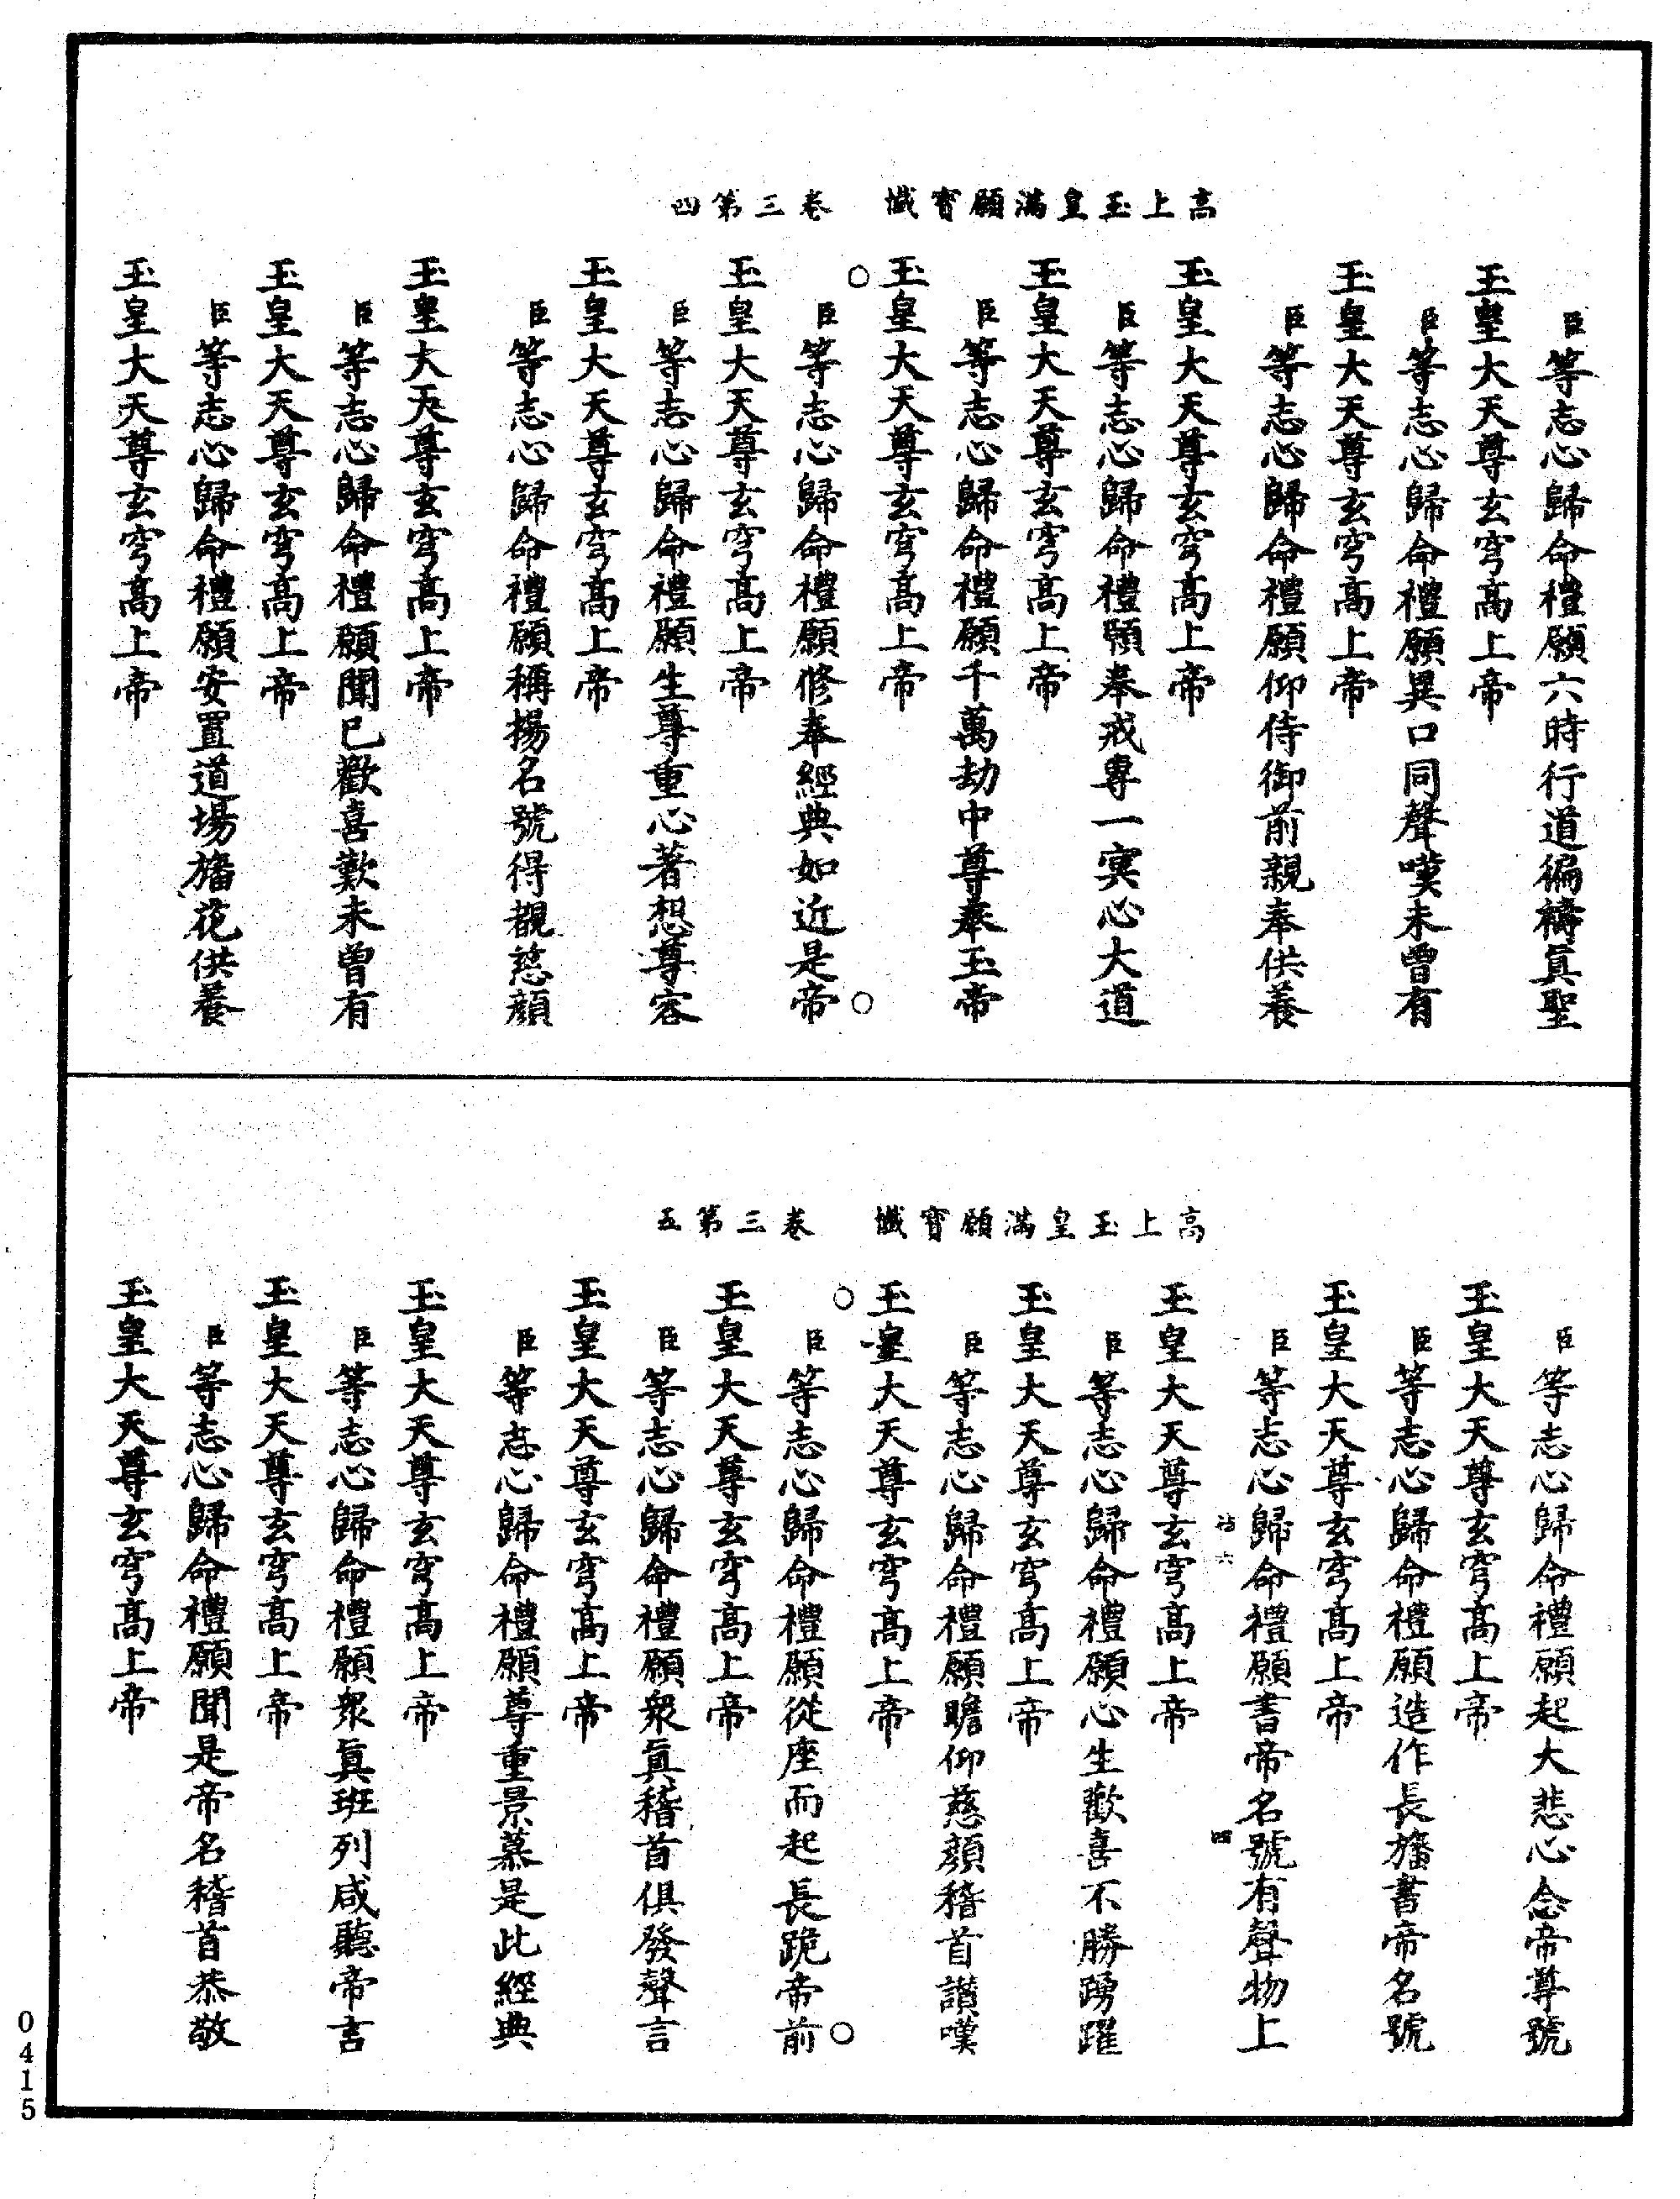 高上玉皇滿願寶懺　卷三第四
臣等志心歸命禮願六時行道徧禱眞聖
玉皇大天尊玄穹高上帝
臣等志心歸命禮願異口同聲嘆未曾有
玉皇大天尊玄穹高上帝
臣等志心歸命禮願仰侍御前親奉供養
玉皇大天尊玄穹高上帝
臣等志心歸命禮願奉戒專一寞心大道
玉皇大天尊玄穹高上帝
臣等志心歸命禮願千萬劫中尊奉玉帝
玉皇大天尊玄穹高上帝
臣等志心歸命禮願修奉經典如近是帝
玉皇大天尊玄穹高上帝
臣等志心歸命禮願生尊重心著想尊容
玉皇大天尊玄穹高上帝
臣等志心歸命禮願稱揚名號得覩慈顔
玉皇大天尊玄穹高上帝
臣等志心歸命禮願聞已歡喜歎未曾有
玉皇大天尊玄穹高上帝
臣等志心歸命禮願安置道場旛花供養
玉皇大天尊玄穹高上帝
高上玉皇滿願寶懺　卷三第五
臣等志心歸命禮願起大悲心念帝尊號
玉皇大天尊玄穹高上帝
臣等志心歸命禮願造作長旛書帝名號
玉皇大天尊玄穹高上帝
臣等志心歸命禮願書帝名號有聲物上
六　四
玉皇大天尊玄穹高上帝
臣等志心歸命禮願心生歡喜不勝踴躍
玉皇大天尊玄穹高上帝
臣等志心歸命禮願瞻仰慈顔稽首讃嘆
玉皇大天尊玄穹高上帝
臣等志心歸命禮願從座而起長跪帝前
玉皇大天尊玄穹高上帝
臣等志心歸命禮願衆眞稽首俱發聲言
玉皇大天尊玄穹高上帝
臣等志心歸命禮願尊重景慕是此經典
玉皇大天尊玄穹高上帝
臣等志心歸命禮願衆眞班列咸聽帝言
玉皇大天尊玄穹高上帝
臣等志心歸命禮願聞是帝名稽首恭敬
玉皇大天尊玄穹高上帝
0415